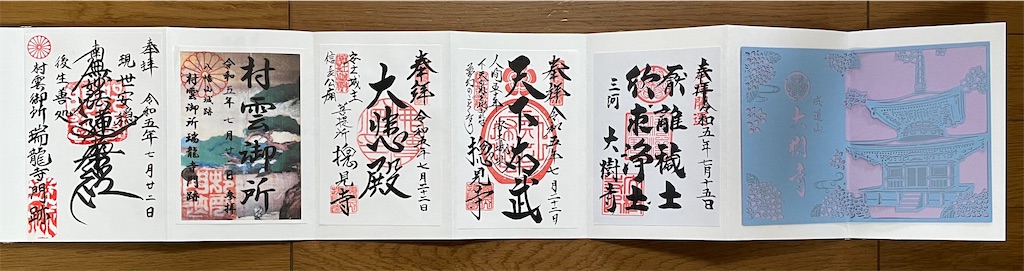 成道山
大樹寺
奉拝 令和五年七月十五日
厭離穢土
欣求浄土
三河 大樹寺
奉拝 令和五年七月二十二日
天下布武
人間五十年
摠見寺
奉拝 令和五年七月二十二日
大悲殿
安土城主
信長公廟
菩提所 摠見寺
村雲御所
令和五年七月廿二日 奉拝
八幡山城跡
村雲御所瑞龍寺門跡
奉拝 令和五年七月廿二日
現世安穏
南無妙法蓮華経
後生善処
村雲御所 瑞龍寺門跡